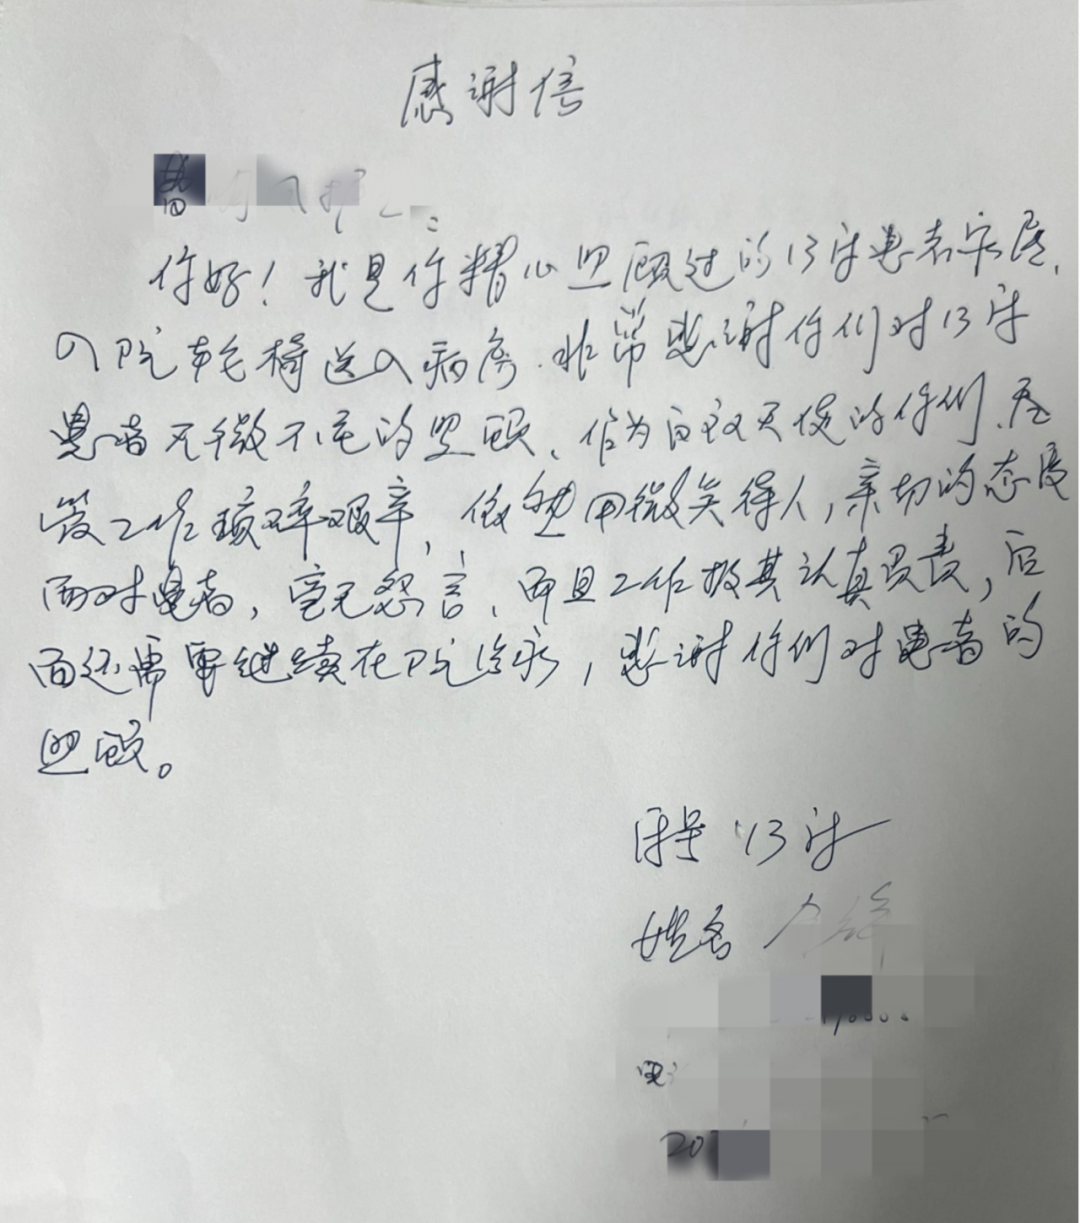 感谢信
你好！我是你精心照顾过的13床患者家属.
入院轮椅送入病房.非常感谢你们对13床
患者无微不至的照顾、作为白衣天使的你们.尽
管工作琐碎艰辛，依然用微笑待人，亲切的态度
面对患者，毫无怨言、而且工作极其认真负责，后
面还需要继续在院治疗，感谢你们对患者的
照顾。
床号 13床
姓名
20